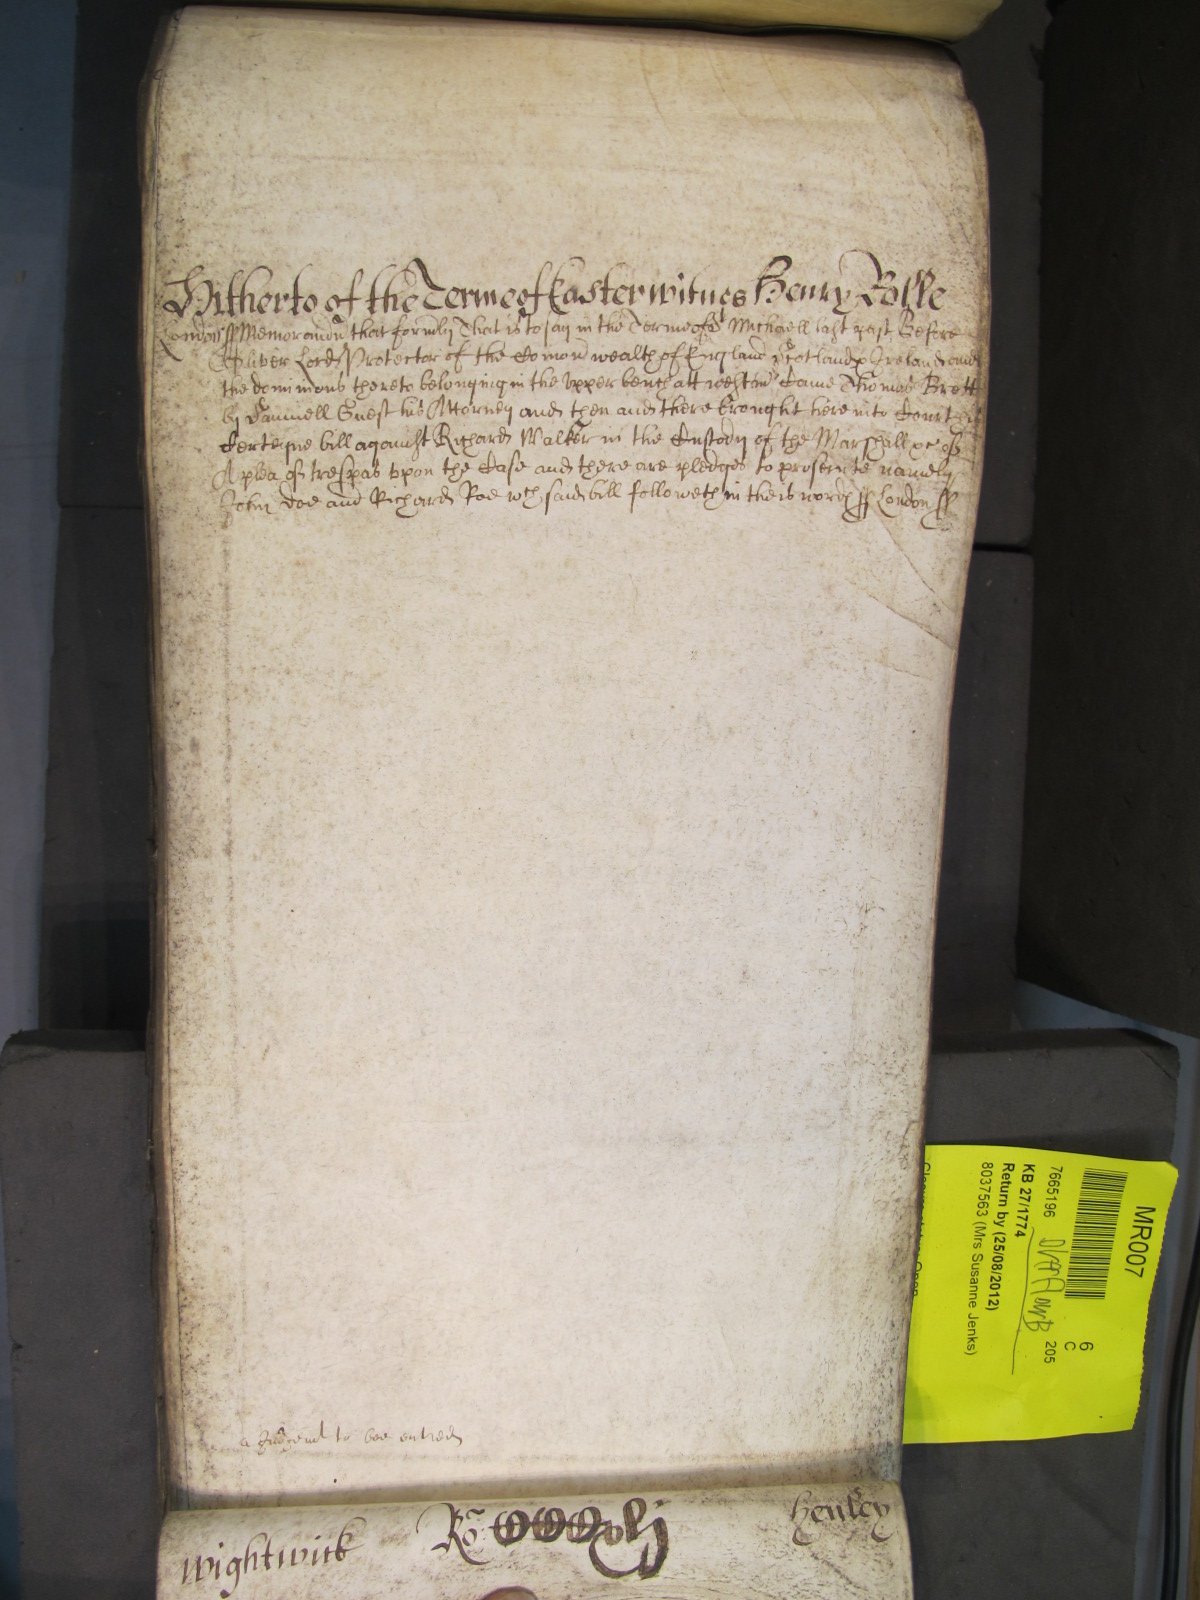 Hitherto of the Terme of Easter witnes Henry Rolle
London ss Memorandu that formly That is to say in the Terme of St Michaell last past Before
Oliver Lord Protector of the Comon wealth of England Scotland & Ireland and
the dominions thereto belonging in the Upper bench att westmr Came Thomas Brett
by Samuell Guest his Attorney and then and there brought here into Court
Certeyne bill against Richard Walker in the Custody of the Marshall &c of
A plea of trespas upon the Case and there are pledges to prosecute namely
John Doe and Richard Roe wch said bill followeth in theis words ss London ss
a Judgemt to bee entred
Wightwick Ro Henley
MR007
6
C
7665196 205
KB 27/1774
Return by (25/08/2012)
8037563 (Mrs Susanne Jenks)